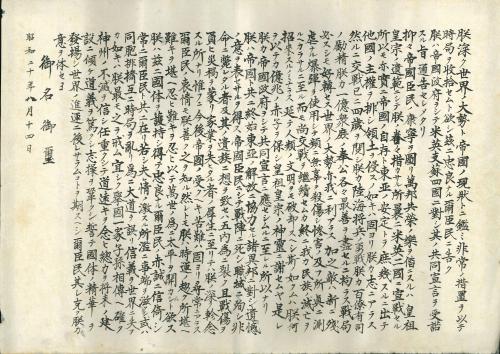 朕深ク世界ノ大勢ト帝國ノ現狀トニ鑑ミ非常ノ措置ヲ以テ
時局ヲ收拾セムト欲シ茲ニ忠良ナル爾臣民ニ告ク
朕ハ帝國政府ヲシテ米英支蘇四國ニ對シ其ノ共同宣言ヲ受諾
スル旨通告セシメタリ
抑々帝國臣民ノ康寧ヲ圖リ萬邦共榮ノ樂ヲ偕ニスルハ皇祖
皇宗ノ遺範ニシテ朕ノ拳々措カサル所曩ニ米英二國ニ宣戰セル
所以モ亦實ニ帝國ノ自存ト東亞ノ安定トヲ庶幾スルニ出テ
他國ノ主權ヲ排シ領土ヲ侵スカ如キハ固ヨリ朕カ志ニアラス
然ルニ交戰已ニ四歳ヲ閲シ朕カ陸海將兵ノ勇戰朕カ百僚有司
ノ勵精朕カ一億衆庶ノ奉公各々最善ヲ盡セルニ拘ラス戰局
必スシモ好轉セス世界ノ大勢亦我ニ利アラス加之敵ハ新ニ殘
虐ナル爆彈ヲ使用シテ頻ニ無辜ヲ殺傷シ慘害ノ及フ所眞ニ測
ルヘカラサルニ至ル而モ尚交戰ヲ繼續セムカ終ニ我カ民族ノ滅亡ヲ
招來スルノミナラス延テ人類ノ文明ヲモ破却スヘシ斯ノ如クムハ朕何
ヲ以テカ億兆ノ赤子ヲ保シ皇祖皇宗ノ神靈ニ謝セムヤ是レ
朕カ帝國政府ヲシテ共同宣言ニ應セシムルニ至レル所以ナリ
朕ハ帝國ト共ニ終始東亞ノ解放ニ協力セル諸盟邦ニ對シ遺憾
ノ意ヲ表セサルヲ得ス帝國臣民ニシテ戰陣ニ死シ職域ニ殉シ非
命ニ斃レタル者及其ノ遺族ニ想ヲ致セハ五内爲ニ裂ク且戰傷ヲ
負ヒ災禍ヲ蒙リ家業ヲ失ヒタル者ノ厚生ニ至リテハ朕ノ深ク軫念
スル所ナリ惟フニ今後帝國ノ受クヘキ苦難ハ固ヨリ尋常ニアラス
爾臣民ノ衷情モ朕善ク之ヲ知ル然レトモ朕ハ時運ノ趨ク所堪ヘ
難キヲ堪ヘ忍ヒ難キヲ忍ヒ以テ萬世ノ爲ニ太平ヲ開カムト欲ス
朕ハ茲ニ國體ヲ護持シ得テ忠良ナル爾臣民ノ赤誠ニ信倚シ
常ニ爾臣民ト共ニ在リ若シ夫レ情ノ激スル所濫ニ事端ヲ滋クシ或ハ
同胞排擠互ニ時局ヲ亂リ爲ニ大道ヲ誤リ信義ヲ世界ニ失フ
カ如キハ朕最モ之ヲ戒ム宜シク擧國一家子孫相傳ヘ確ク
神州ノ不滅ヲ信シ任重クシテ道遠キヲ念ヒ總力ヲ將來ノ建
設ニ傾ケ道義ヲ篤クシ志操ヲ鞏クシ誓テ國體ノ精華ヲ
發揚シ世界ノ進運ニ後レサラムコトヲ期スヘシ爾臣民其レ克ク朕カ
意ヲ體セヨ
御名御璽
昭和二十年八月十四日